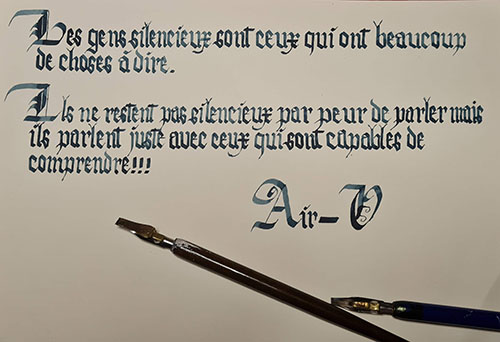 Les gens silencieux sont ceux qui ont beaucoup
de choses à dire.
Ils ne restent pas silencieux par peur de parler mais
ils parlent juste avec ceux qui sont capables de
comprendre!!!
Air-V